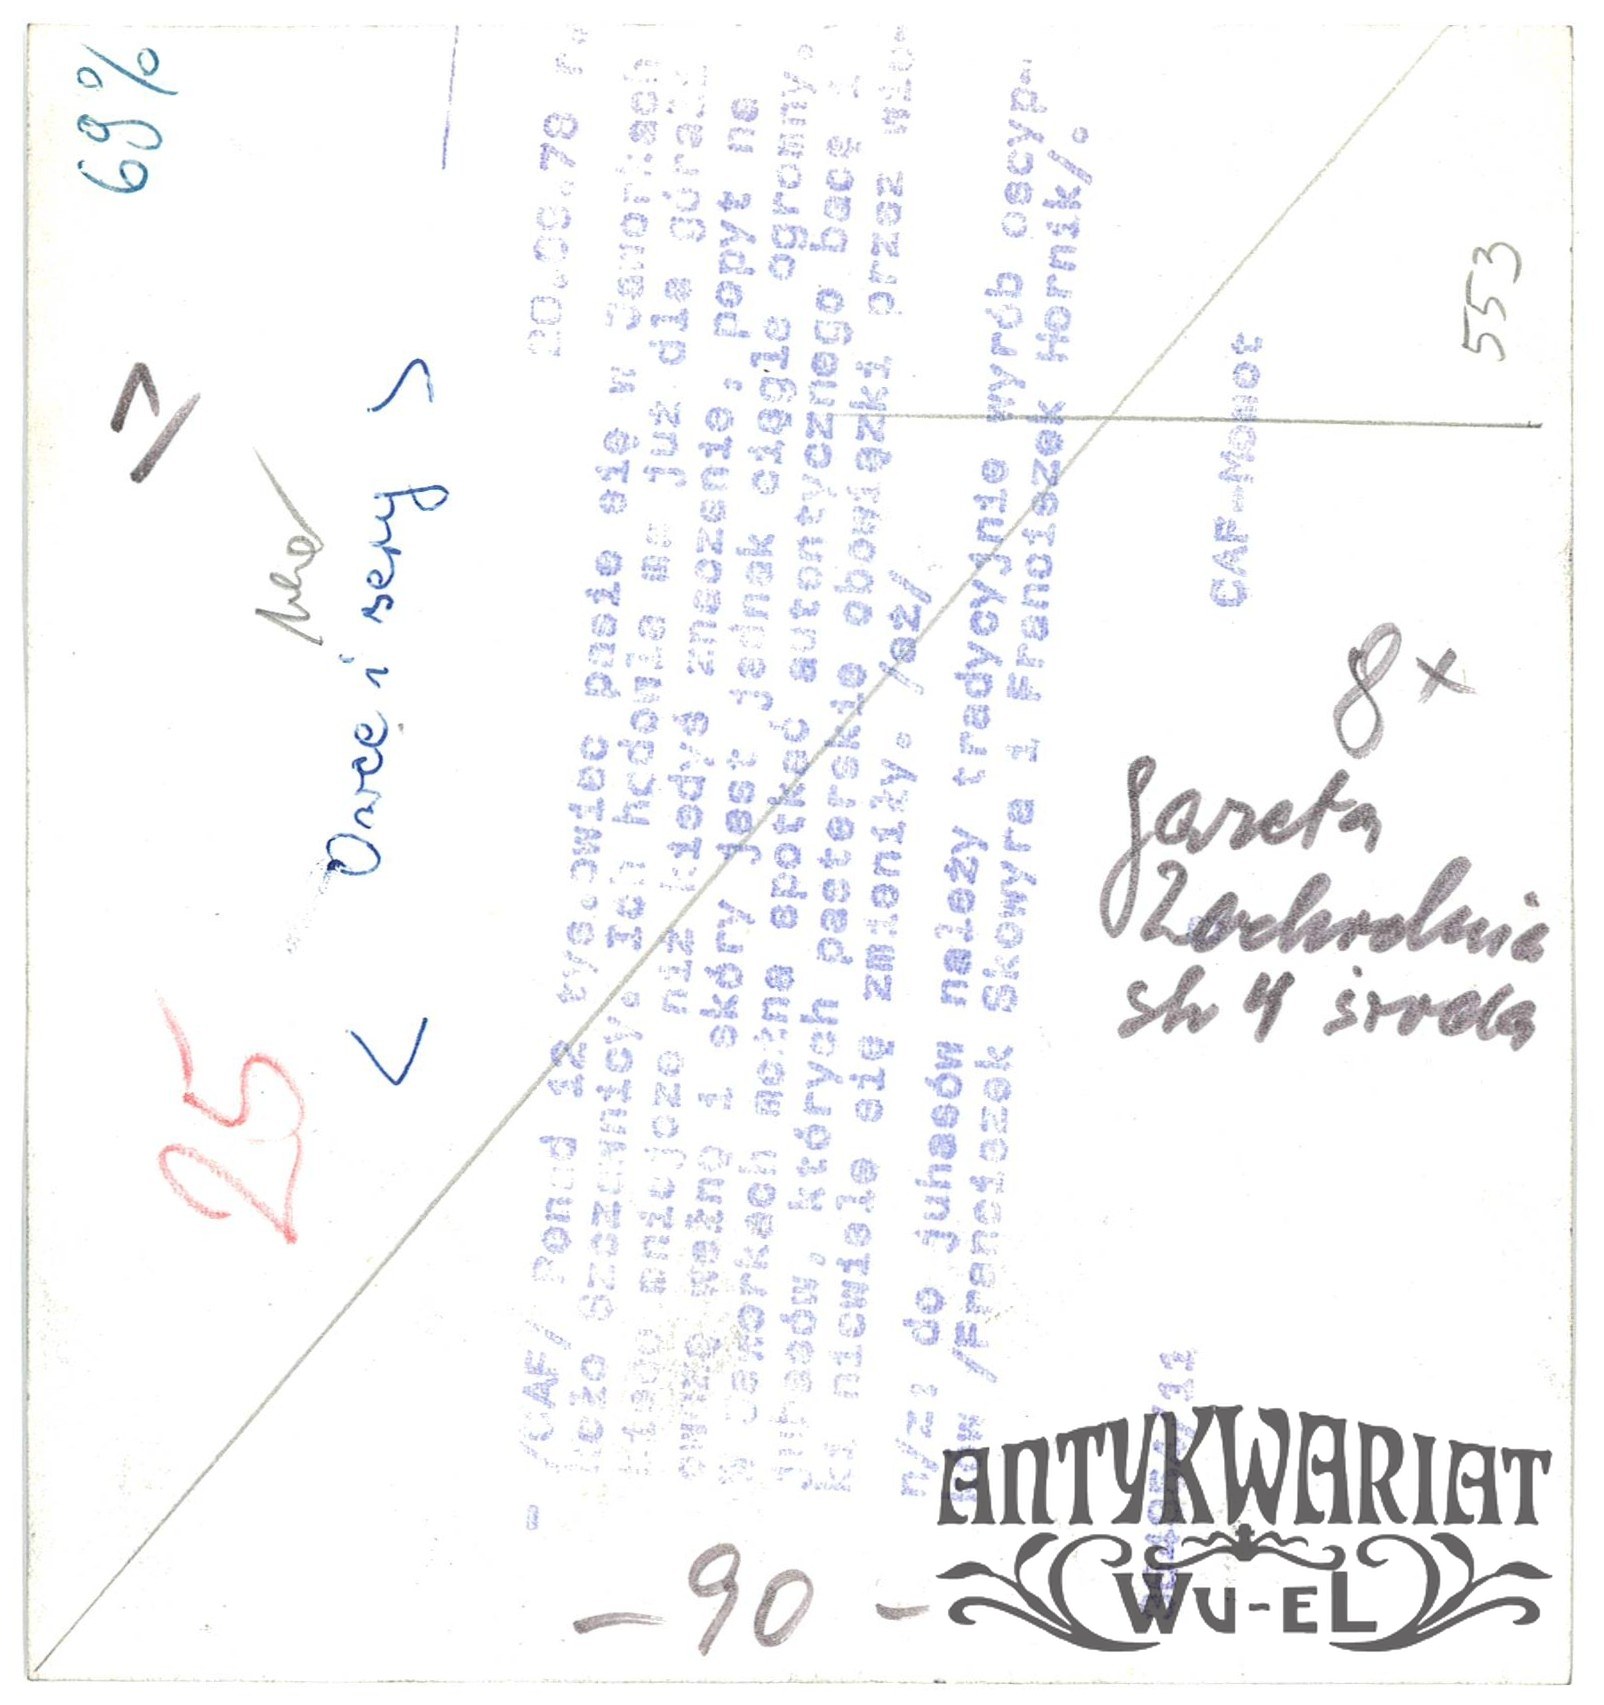 69%
7
Owce i sery
25
20.09.78 r.
- /CAF/ Ponad 12 tys. owiec pasie się w Jaworkach
koło Szczawnicy. Ich hodowla ma już dla górali
mniejsze niż kiedyś znaczenie, popyt na
owczą wełnę i skóry jest jednak ciągle ogromny.
W Jaworkach można spotkać autentycznego bacę i
juhasów, których pasterskie obowiązki przez wie-
ki niewiele się zmieniły. /ez/
n/z: do juhasów należy tradycyjnie wyrób oscyp-
ków /Franciszek Skowyra i Franciszek Hornik/.
CAF-Momot
553
8x
Gazeta
Zachodnia
str 4 środa
- 90 -
ANTYKWARIAT
WU-EL